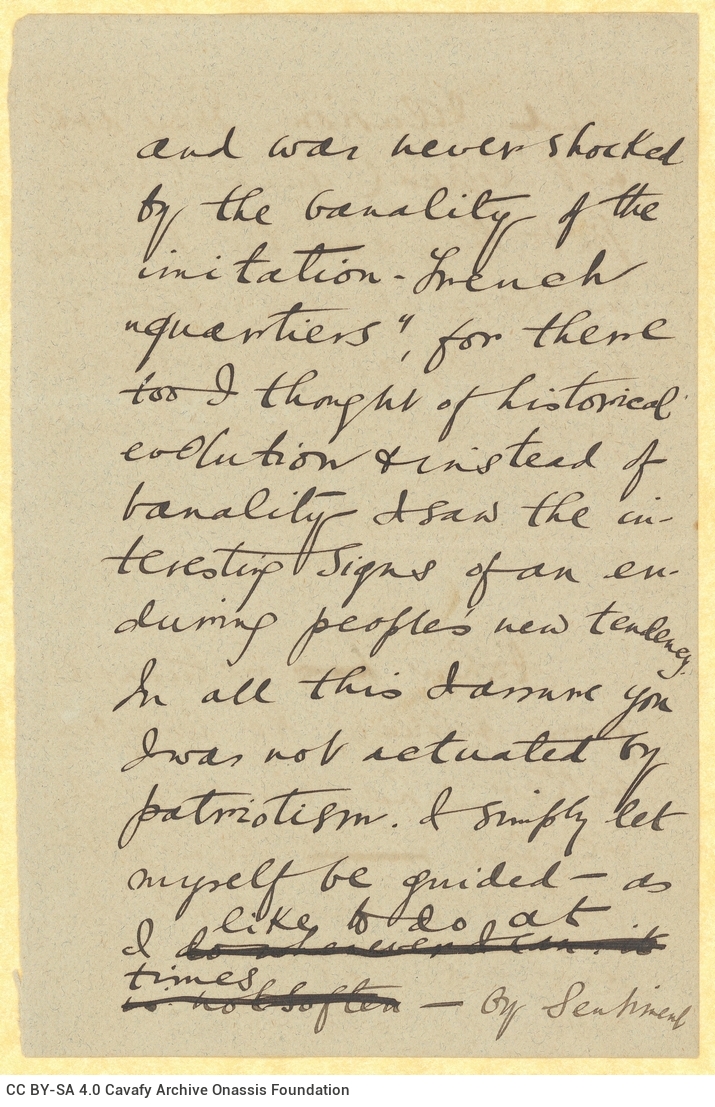 and was never shocked
by the banality of the
imitation-French
"quartiers", for there
too I thought of historical
evolution & instead of
banality I saw the in-
teresting signs of an en-
during people's new tendency.
In all this I assure you
I was not actuated by
patriotism. I simply let
myself be guided — as
like to do at
I do whenever I can: it
times
is not so often — by Sentiment
CC BY-SA 4.0 Cavafy Archive Onassis Foundation